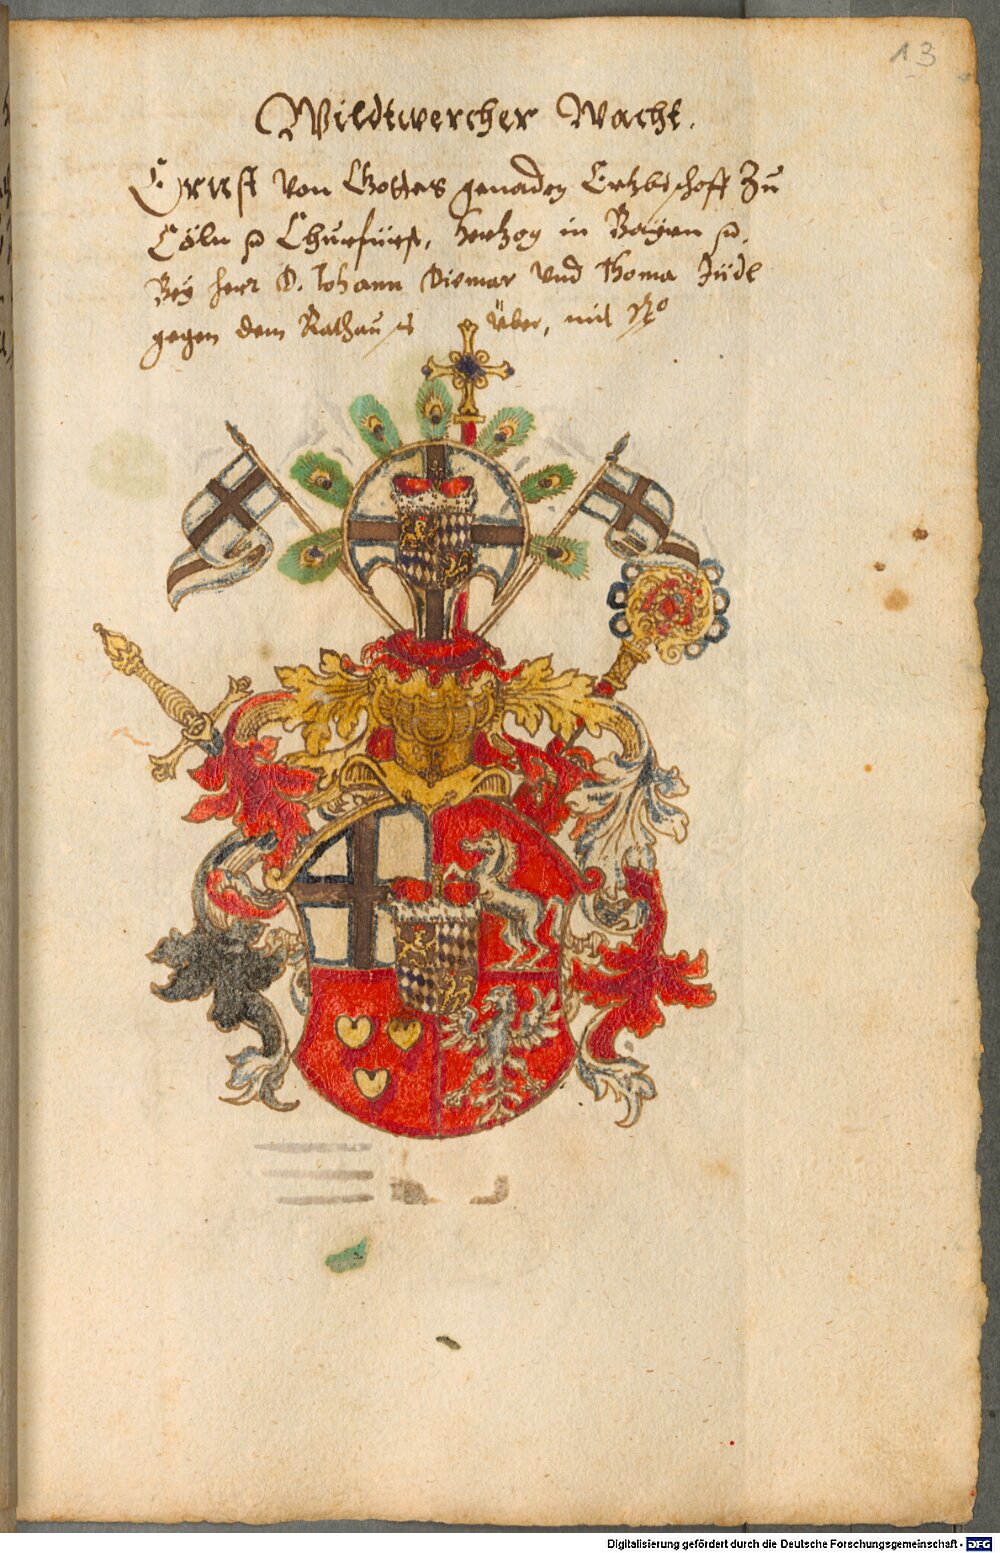 13
Wildtwercher Wacht.
Ernst von Gottes genaden Ertzbischoff Zu
Cöln ꝛc Churfürst, Hertzog in Bayrn ꝛc.
Bey herr D. Johann Diemar Vnd Thoma Jüdl
gegen dem Rathaus Über, mit No
Digitalisierung gefördert durch die Deutsche Forschungsgemeinschaft - DFG